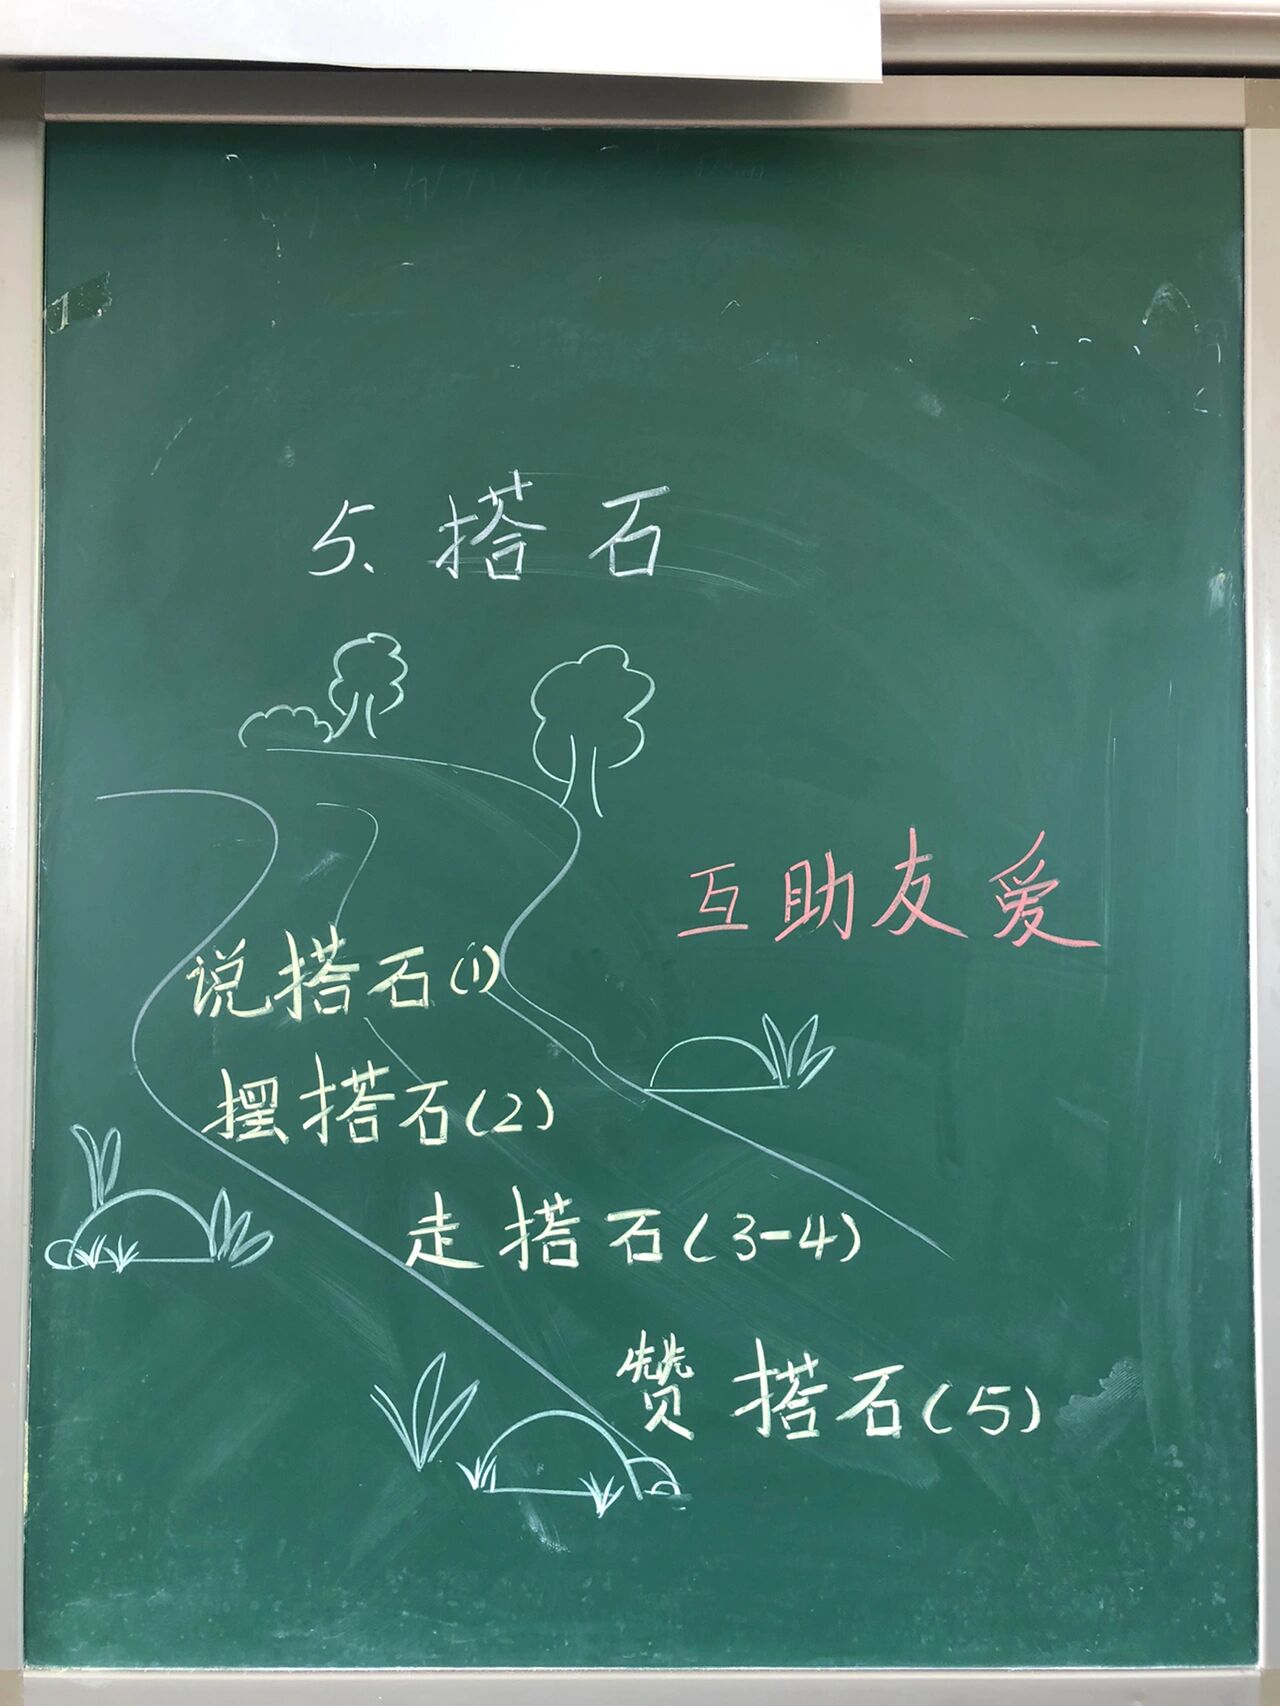 5、搭石
互助友爱
说搭石(1)
摆搭石(2)
走搭石(3-4)
赞搭石(5)